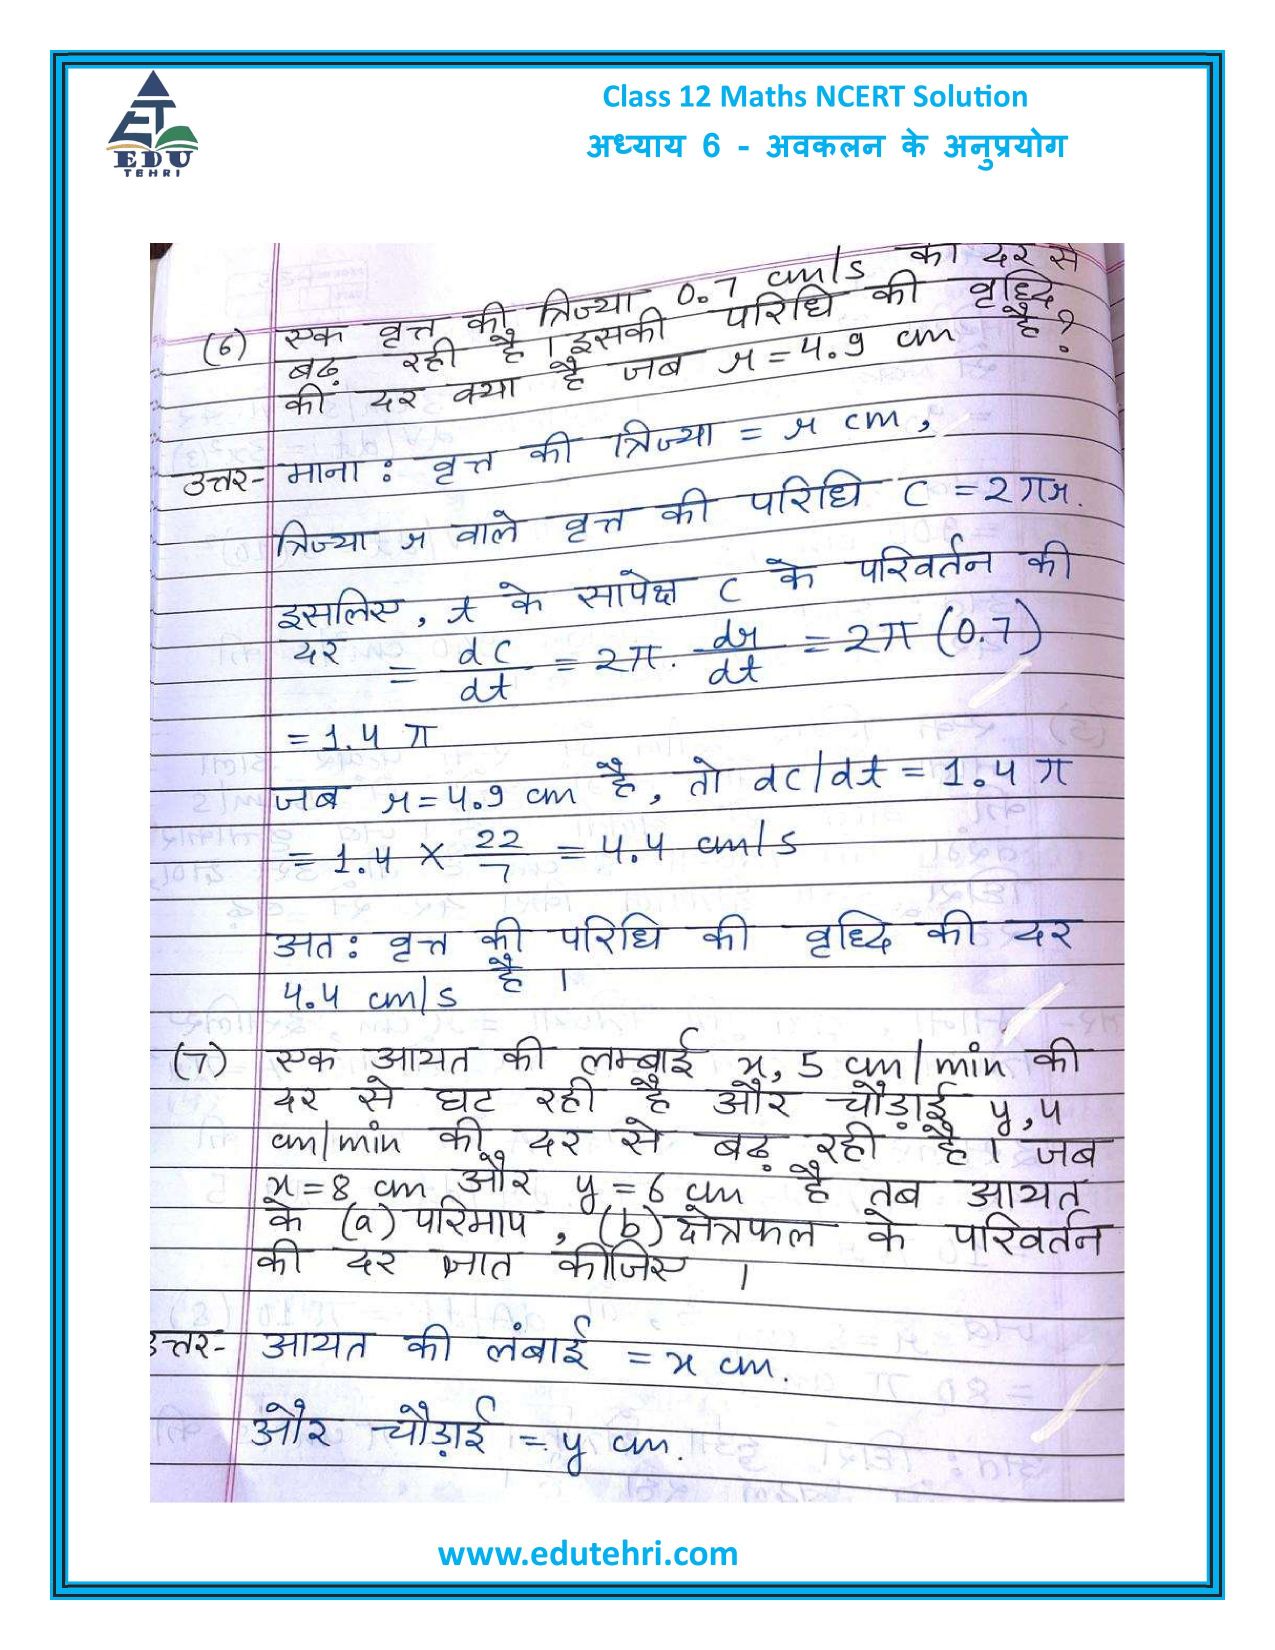 Class 12 Maths NCERT Solution
अध्याय 6 - अवकलन के अनुप्रयोग
ET
EDU
TEHRI
(6) एक वृत्त की त्रिज्या 0.7 cm/s की दर से
बढ़ रही है। इसकी परिधि की वृद्धि
की दर क्या है जब r = 4.9 cm है?
उत्तर- माना : वृत्त की त्रिज्या = r cm,
त्रिज्या r वाले वृत्त की परिधि C = 2πr.
इसलिए, t के सापेक्ष C के परिवर्तन की
दर = dC/dt = 2π. dr/dt = 2π (0.7)
= 1.4 π
जब r = 4.9 cm है, तो dc/dt = 1.4 π
= 1.4 × 22/7 = 4.4 cm/s
अत: वृत्त की परिधि की वृध्दि की दर
4.4 cm/s है ।
(7) एक आयत की लम्बाई x, 5 cm/min की
दर से घट रही है और चौड़ाई y, 4
cm/min की दर से बढ़ रही है। जब
x = 8 cm और y = 6 cm है तब आयत
के (a) परिमाप, (b) क्षेत्रफल के परिवर्तन
की दर ज्ञात कीजिए ।
उत्तर- आयत की लंबाई = x cm.
और चौड़ाई = y cm.
www.edutehri.com